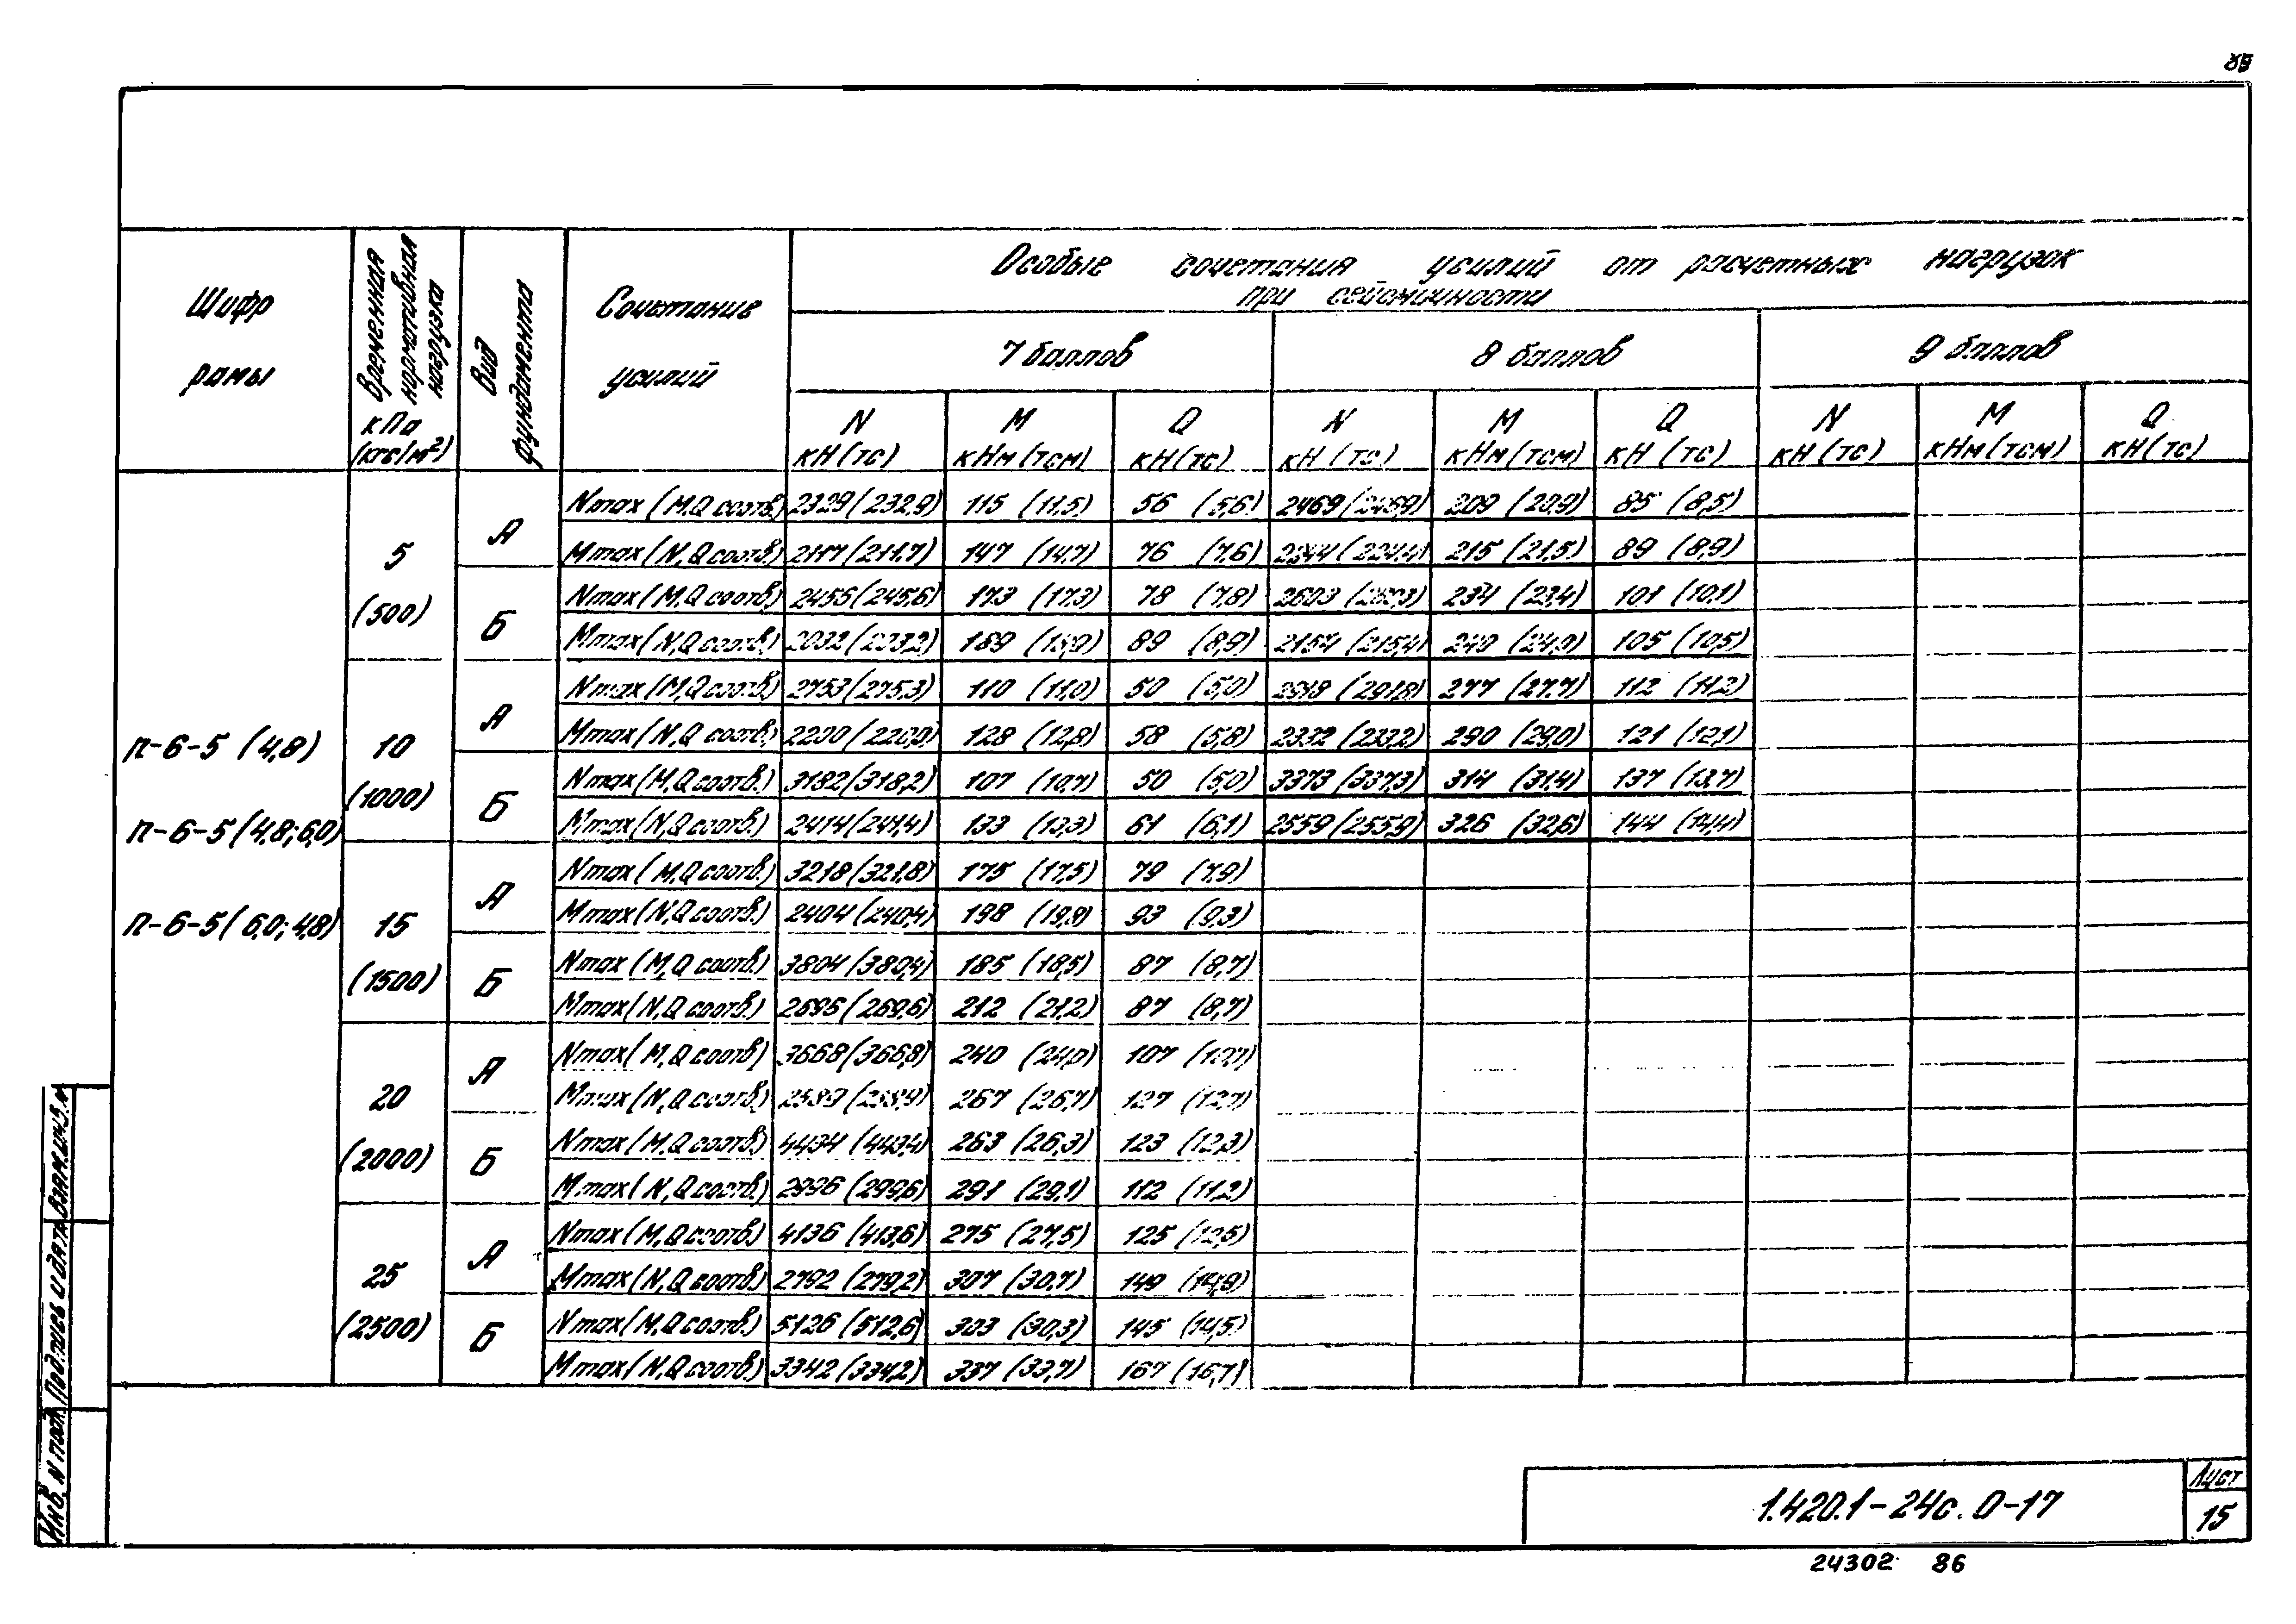 85
Шифр рамы
Временная нормативная нагрузка кПа (кгс/м²)
Вид фундамента
Сочетание усилий
Особые сочетания усилий от расчетных нагрузок
при сейсмичности
7 баллов 8 баллов 9 баллов
N кН (тс) M кНм (тсм) Q кН (тс) N кН (тс) M кНм (тсм) Q кН (тс) N кН (тс) M кНм (тсм) Q кН (тс)
п-6-5 (4,8)
п-6-5 (4,8; 6,0)
п-6-5 (6,0; 4,8)
5 (500)
А
Nmax (M,Q соотв.) 2329 (232,9) 115 (11,5) 56 (5,6) 2469 (246,9) 209 (20,9) 85 (8,5)
Mmax (N,Q соотв.) 2117 (211,7) 147 (14,7) 76 (7,6) 2244 (224,4) 215 (21,5) 89 (8,9)
Б
Nmax (M,Q соотв.) 2456 (245,6) 173 (17,3) 78 (7,8) 2603 (260,3) 234 (23,4) 101 (10,1)
Mmax (N,Q соотв.) 2032 (203,2) 189 (18,9) 89 (8,9) 2154 (215,4) 240 (24,0) 105 (10,5)
10 (1000)
А
Nmax (M,Q соотв.) 2753 (275,3) 110 (11,0) 50 (5,0) 2918 (291,8) 277 (27,7) 112 (11,2)
Mmax (N,Q соотв.) 2200 (220,0) 128 (12,8) 58 (5,8) 2332 (233,2) 290 (29,0) 121 (12,1)
Б
Nmax (M,Q соотв.) 3182 (318,2) 107 (10,7) 50 (5,0) 3373 (337,3) 314 (31,4) 137 (13,7)
Mmax (N,Q соотв.) 2414 (241,4) 133 (13,3) 61 (6,1) 2559 (255,9) 326 (32,6) 144 (14,4)
15 (1500)
А
Nmax (M,Q соотв.) 3218 (321,8) 175 (17,5) 79 (7,9)
Mmax (N,Q соотв.) 2404 (240,4) 198 (19,8) 93 (9,3)
Б
Nmax (M,Q соотв.) 3804 (380,4) 185 (18,5) 87 (8,7)
Mmax (N,Q соотв.) 2696 (269,6) 212 (21,2) 87 (8,7)
20 (2000)
А
Nmax (M,Q соотв.) 3668 (366,8) 240 (24,0) 107 (10,7)
Mmax (N,Q соотв.) 2589 (258,9) 267 (26,7) 127 (12,7)
Б
Nmax (M,Q соотв.) 4434 (443,4) 263 (26,3) 123 (12,3)
Mmax (N,Q соотв.) 2996 (299,6) 291 (29,1) 112 (11,2)
25 (2500)
А
Nmax (M,Q соотв.) 4136 (413,6) 275 (27,5) 125 (12,5)
Mmax (N,Q соотв.) 2792 (279,2) 307 (30,7) 149 (14,9)
Б
Nmax (M,Q соотв.) 5126 (512,6) 303 (30,3) 145 (14,5)
Mmax (N,Q соотв.) 3342 (334,2) 337 (33,7) 167 (16,7)
Инв. N подл. Подпись и дата Взам.инв.N
1.420.1-24с. 0-17
Лист
15
24302 86